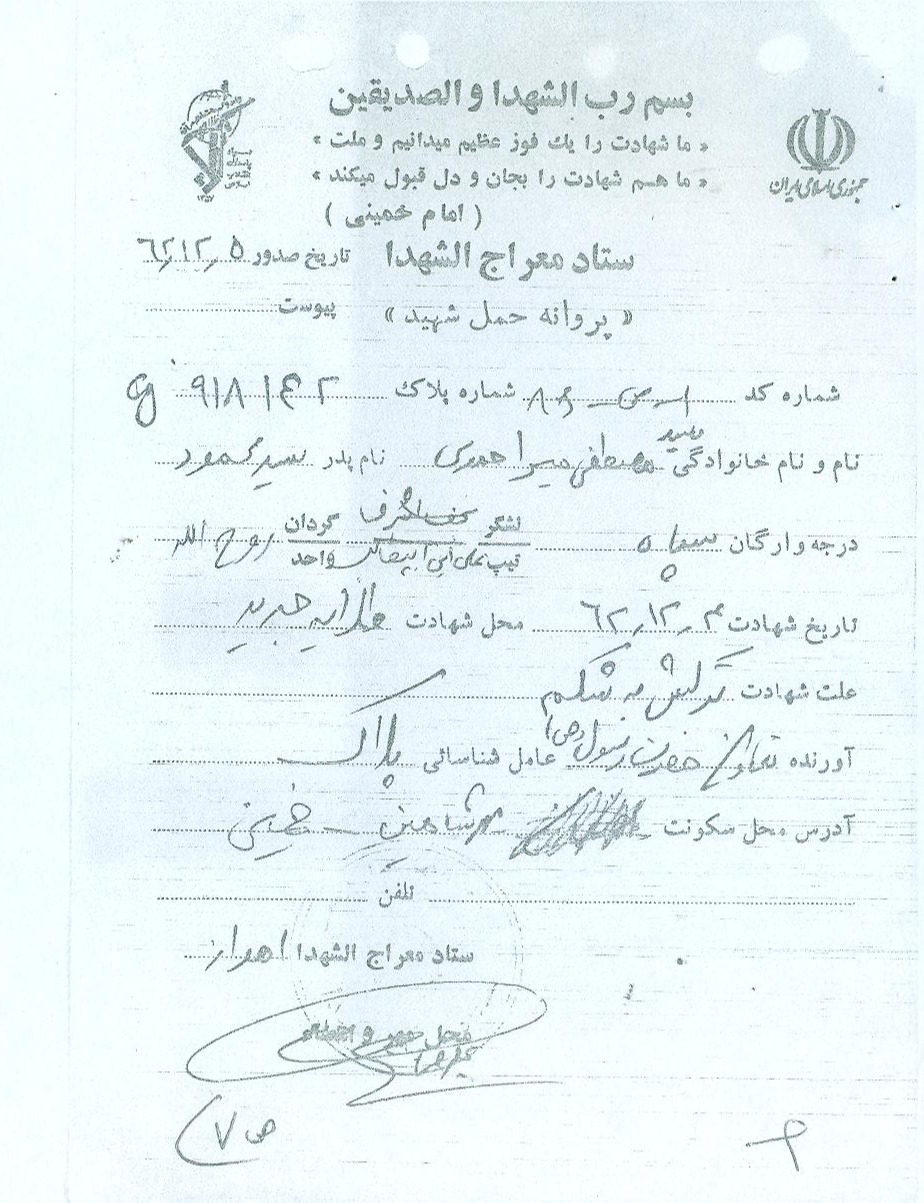 بسم رب الشهدا و الصدیقین
« ما شهادت را یك فوز عظیم میدانیم و ملت »
« ما هسم شهادت را بجان و دل قبول میكند »
( امام خمینی )
جمهوری اسلامی ایران
ستاد معراج الشهدا تاریخ صدور ۶۲٫۱۲٫۵
« پروانه حمل شهید » پیوست
شماره کد شماره پلاك ۹۱۸۱۴۲ g
نام و نام خانوادگی سید مصطفی میراحمدی نام پدر سید محمود
درجه و ارگان سپاه لشگر نجف اشرف گردان روح الله
تیپ واحد
تاریخ شهادت ۶۲٫۱۲٫ محل شهادت جدید
علت شهادت ترکش به شکم
آورنده تعاون حضرت رسول (ص) عامل شناسائی پلاک
آدرس محل سکونت شاهین خمینی
تلفن
ستاد معراج الشهدا اهواز
محل مهر و امضاء
ص ۷